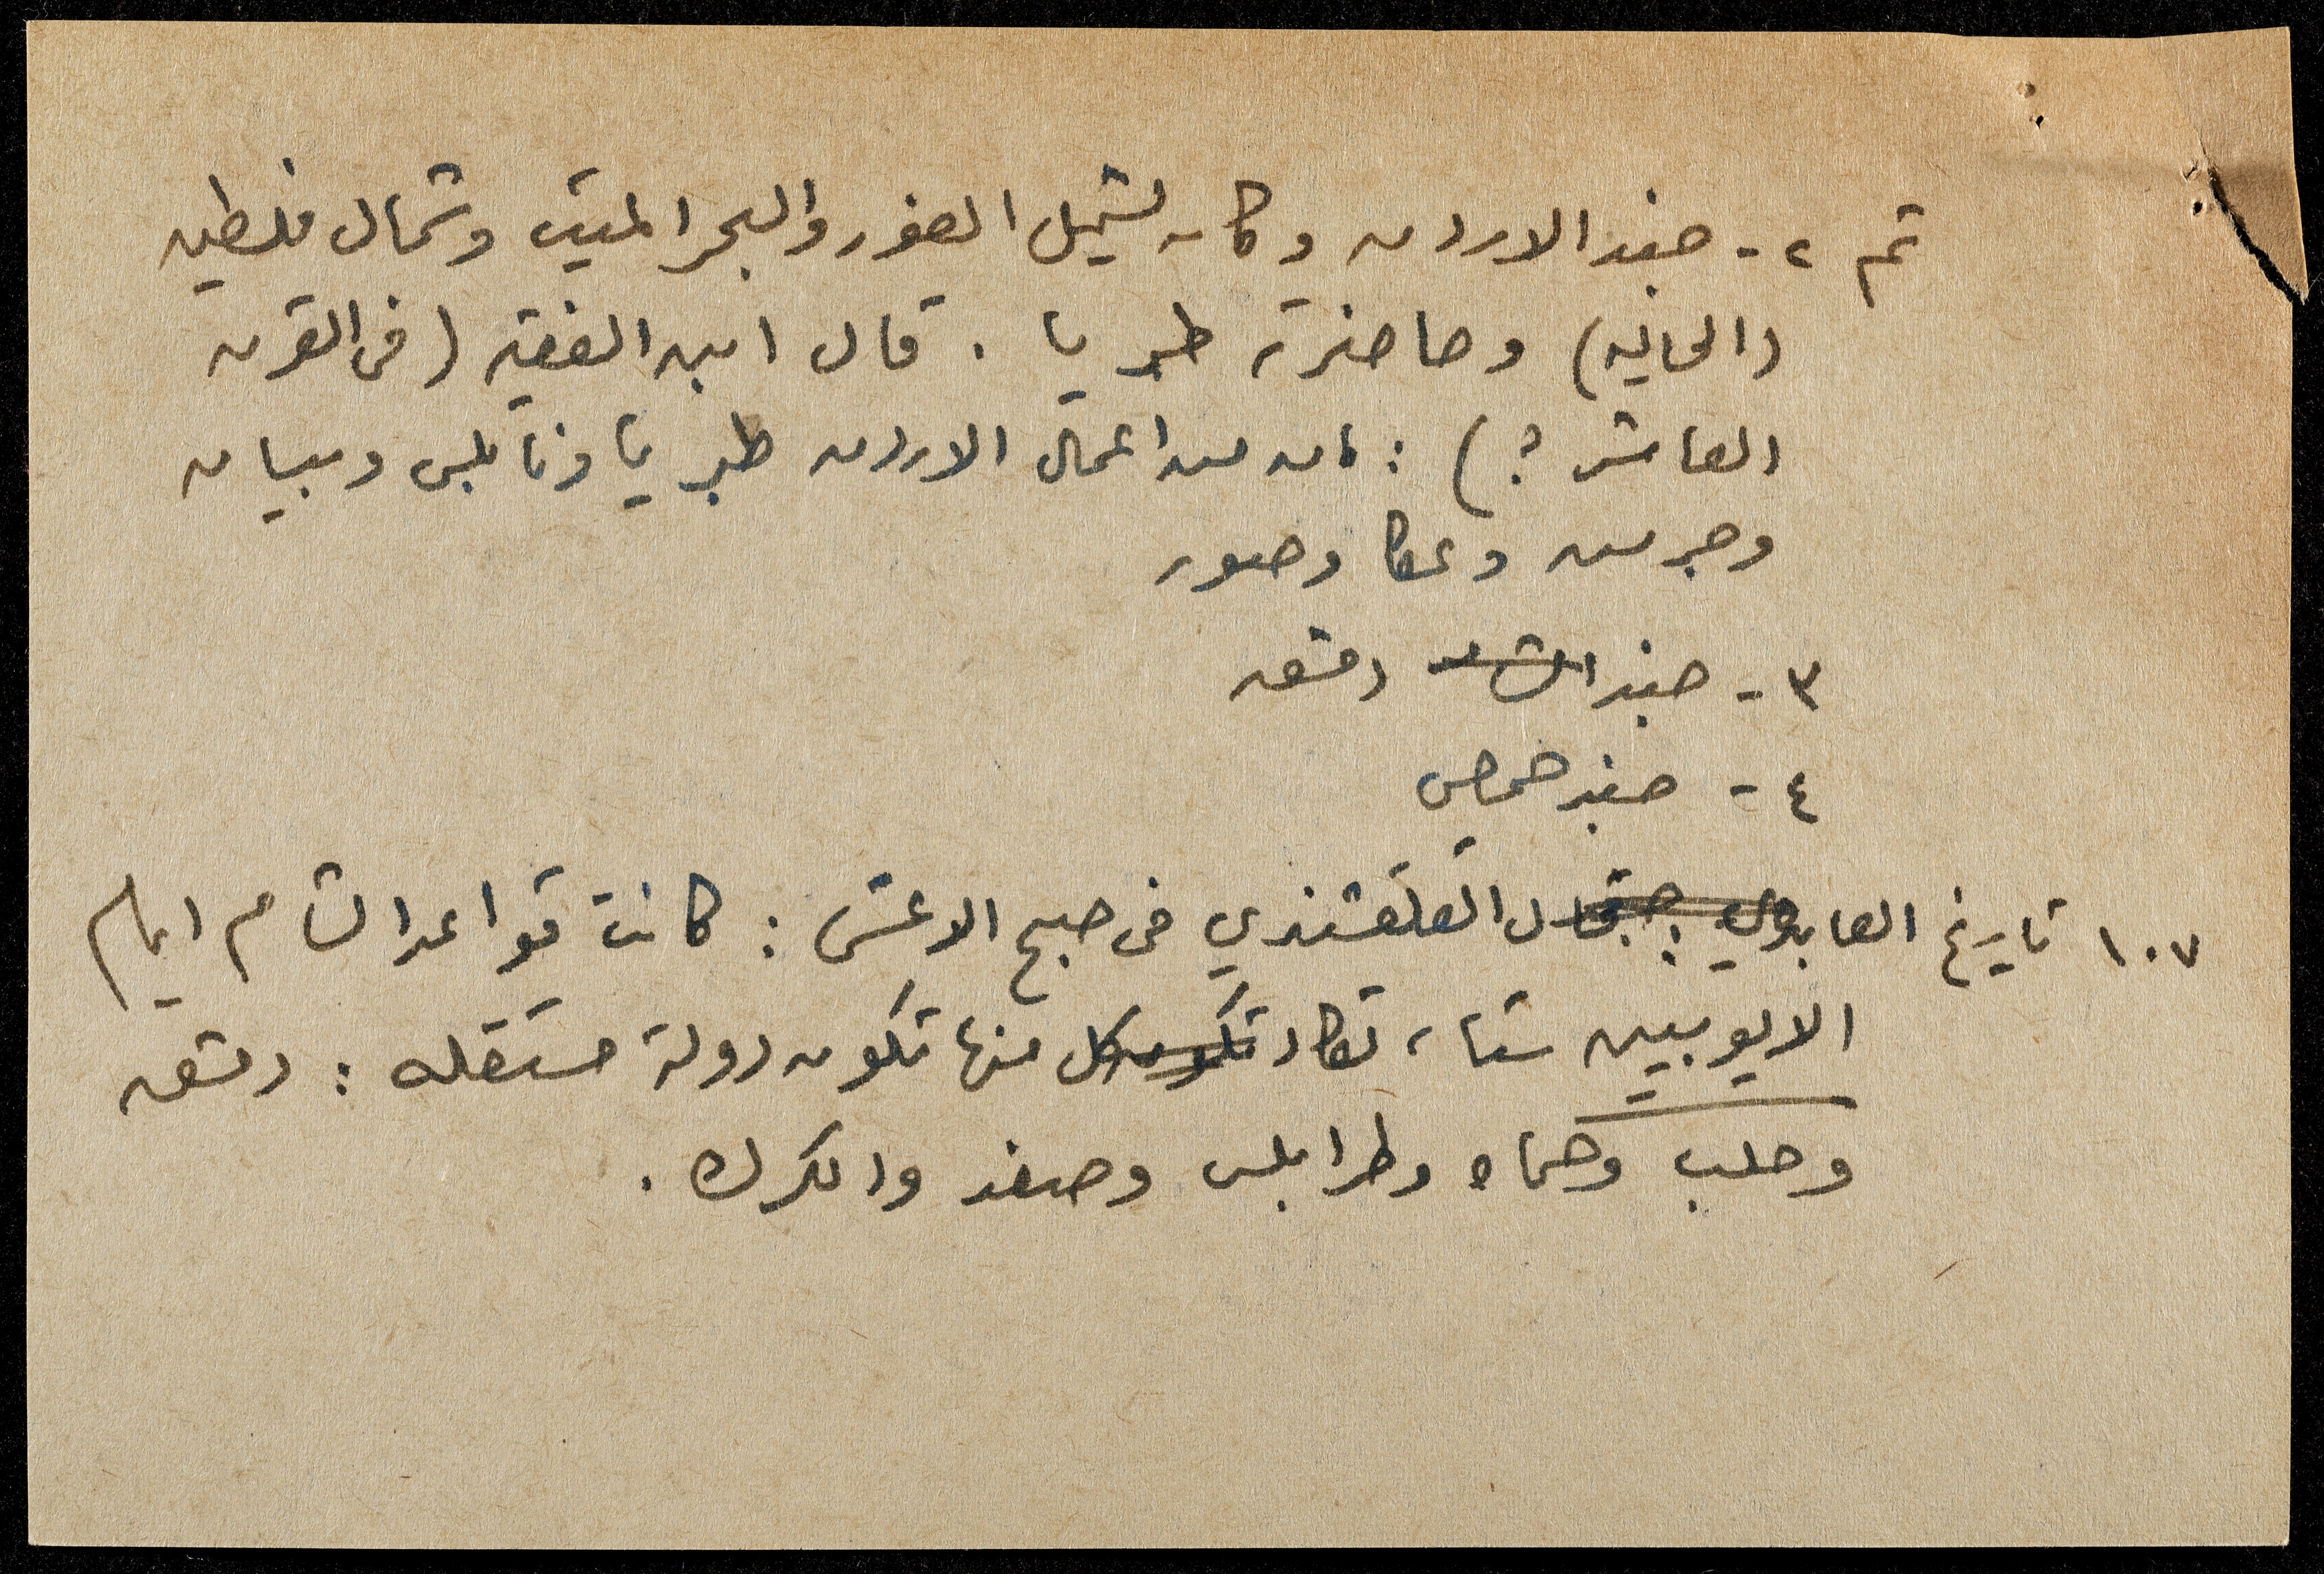 ثم ٢- جند الاردن وكان يشمل الغور والبحر الميت وشمال فلسطين
(الحاليه) وحاضرته طبريا . قال ابن الفقيه (في القرن
العاشر ؟) : ان من اعمال الاردن طبريا ونابلس وبيسان
وجرش وعكا وصور
٣- جند الشام دمشق
٤- جند حمص
١٠٧ تاريخ العابدي : قال القلقشندي في صبح الاعشى : كانت قواعد الشام ايام
الايوبيين ستا، تكاد تكون كل منها تكون دولة مستقله : دمشق
وحلب وحماه وطرابلس وصفد والكرك .